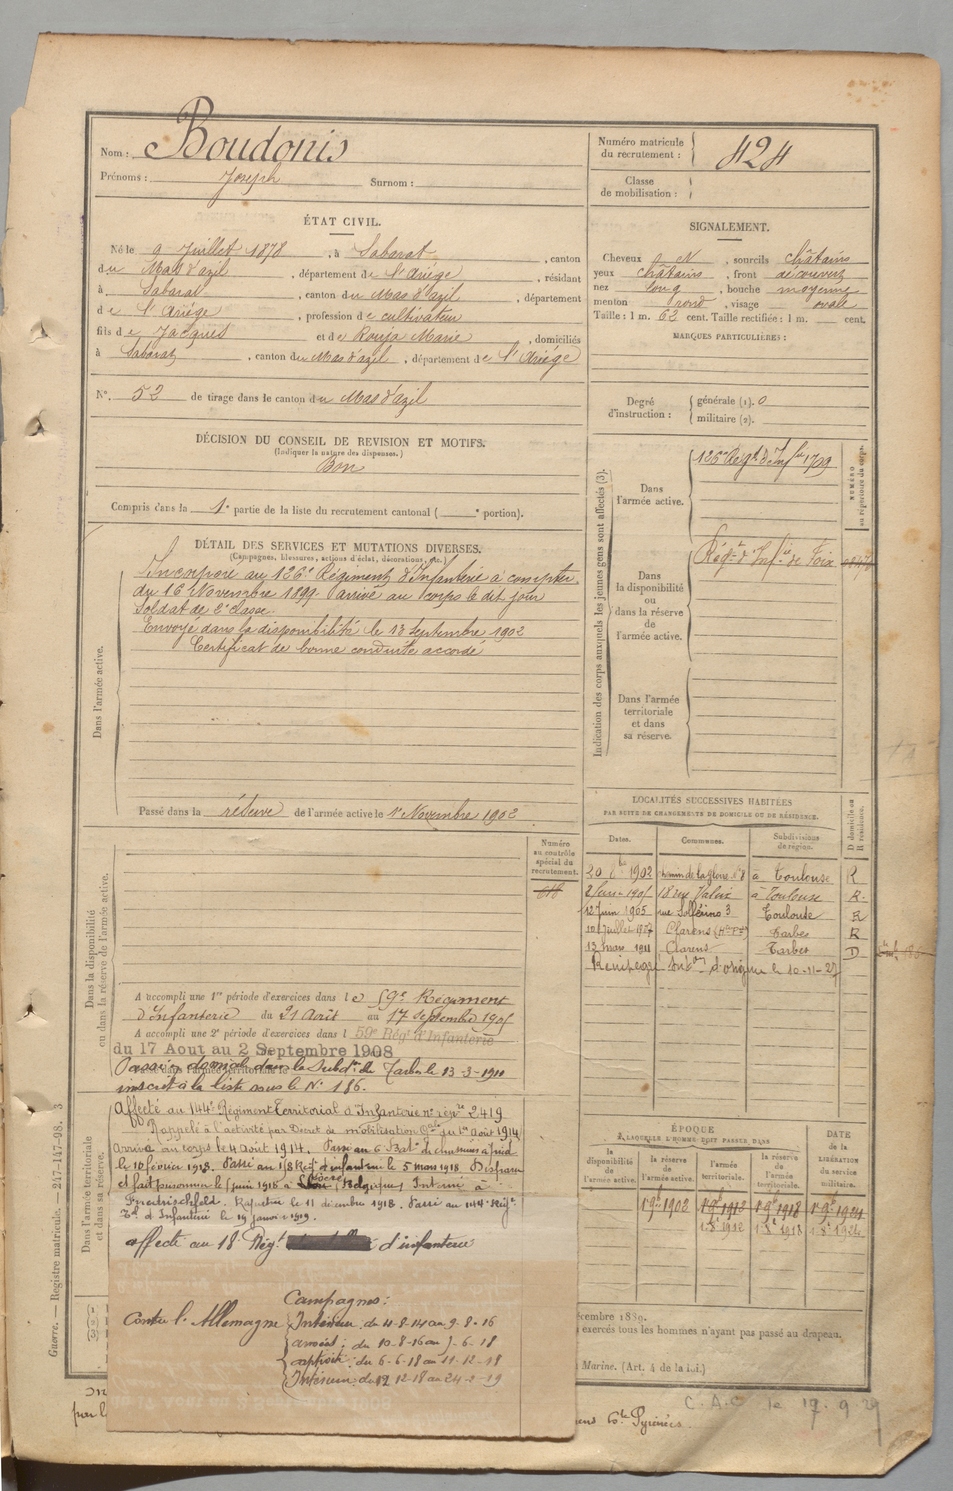 Nom : Boudonis
Prénoms : Joseph Surnom :
Numéro matricule du recrutement : 424
Classe de mobilisation :
ÉTAT CIVIL.
Né le 9 Juillet 1878, à Sabarat, canton
du Mas d'azil, département de l'Ariège, résidant
à Sabarat, canton du Mas d'azil, département
de l'Ariège, profession de cultivateur
fils de Jacques et de Rouja Marie, domiciliés
à Sabarat, canton du Mas d'azil, département de l'Ariège
N° 52 de tirage dans le canton du Mas d'azil
SIGNALEMENT.
Cheveux N, sourcils châtains
yeux châtains, front découvert
nez long, bouche moyenne
menton rond, visage ovale
Taille : 1 m. 62 cent. Taille rectifiée : 1 m. cent.
MARQUES PARTICULIÈRES :
Degré d'instruction : générale (1). 0
militaire (2).
DÉCISION DU CONSEIL DE REVISION ET MOTIFS.
(Indiquer la nature des dispenses.)
Bon
Compris dans la 1e partie de la liste du recrutement cantonal ( e portion).
DÉTAIL DES SERVICES ET MUTATIONS DIVERSES.
(Campagnes, blessures, actions d'éclat, décorations, etc.)
Dans l'armée active.
Incorporé au 126e Régiment d'Infanterie à compter
du 16 Novembre 1899. Arrivé au corps le dit jour
Soldat de 2e classe.
Envoyé dans la disponibilité le 13 Septembre 1902
Certificat de bonne conduite accordé
Passé dans la réserve de l'armée active le 1er Novembre 1902
Indication des corps auxquels les jeunes gens sont affectés (3).
NUMÉRO au répertoire du corps.
Dans l'armée active.
126e Regt d'Infie 1709
Dans la disponibilité ou dans la réserve de l'armée active.
Régt d'Infie de Foix
Dans l'armée territoriale et dans sa réserve.
LOCALITÉS SUCCESSIVES HABITÉES
PAR SUITE DE CHANGEMENTS DE DOMICILE OU DE RÉSIDENCE.
Dates. Communes. Subdivisions de région. D domicile ou R résidence.
20 8bre 1902 à Toulouse R
à Toulouse R.
12 Juin 1905 rue Solférino 3 Toulouse R
10 Juillet 1907 Clarens (Htes Pées) Tarbes R
13 mars 1911 Clarens Tarbes D
le 10-11-27
Dans la disponibilité ou dans la réserve de l'armée active.
Numéro au contrôle spécial du recrutement.
A accompli une 1re période d'exercices dans le 59e Régiment
d'Infanterie du 21 Août au 17 septembre 1905
A accompli une 2e période d'exercices dans l 59e Régt d'Infanterie
du 17 Aout au 2 Septembre 1908
Passé domicié dans la Subdon de Tarbes le 13-3-1911
inscrit à la liste sous le N° 186.
Dans l'armée territoriale et dans sa réserve.
Affecté au 144e Régiment Territorial d'Infanterie n° répre 2419
Rappelé à l'activité par Décret de mobilisation Gale du 1er Août 1914
Arrivé au corps le 4 août 1914. Passé au 6 Baton de chasseurs à pied
le 12 février 1918. Passé au 18 Régt d'infanterie le 5 mars 1918 Disparu
et fait prisonnier le 5 juin 1918 à (Belgique) Interné à
Friedrischfeld. Rapatrié le 11 décembre 1918. Passé au 144e Régt
Tal d'Infanterie le 19 janvier 1919.
affecté au 18e Régt d'infanterie
Campagnes :
Contre l'Allemagne Intérieur : du 4-8-14 au 9-8-16
armées : du 10-8-16 au 5-6-18
captivité : du 6-6-18 au 11-12-18
Intérieur : du 12 12-18 au 24-2-19
ÉPOQUE
À LAQUELLE L'HOMME DOIT PASSER DANS
DATE de la LIBÉRATION du service militaire.
la disponibilité de l'armée active. la réserve de l'armée active. l'armée territoriale. la réserve de l'armée territoriale.
1er 9bre 1902 1er 9bre 1912 1er 9bre 1918 1er 9bre 1924
1er 8bre 1912 1er 8bre 1918 1er 8bre 1924
écembre 1889.
exercés tous les hommes n'ayant pas passé au drapeau.
Marine. (Art. 4 de la loi.)
C.A.C le 17.9.27
Pyrénées.
Guerre. — Registre matricule. — 247-147-98. 3